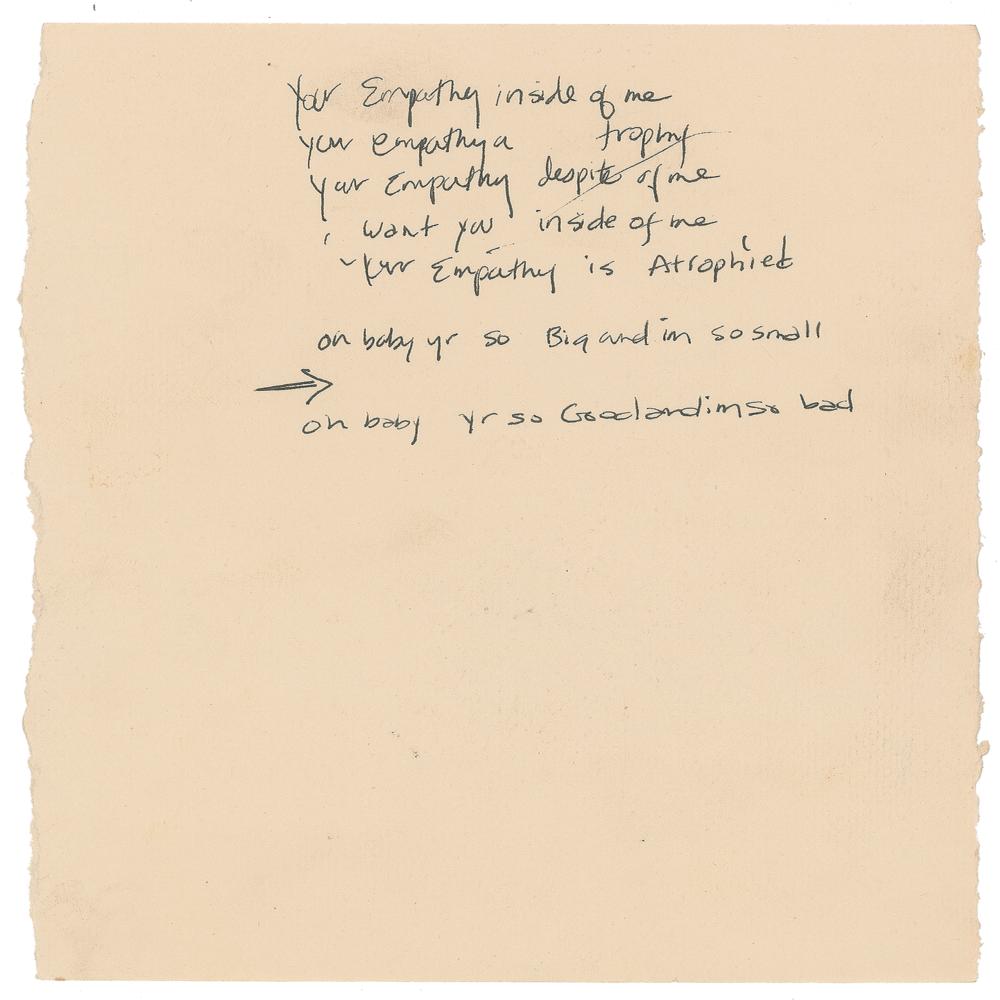 Your Empathy inside of me
your empathy a trophy
Your Empathy despite of me
i want you inside of me
- Your Empathy is Atrophied
oh baby yr so Big and im so small
→
oh baby yr so Good and im so bad